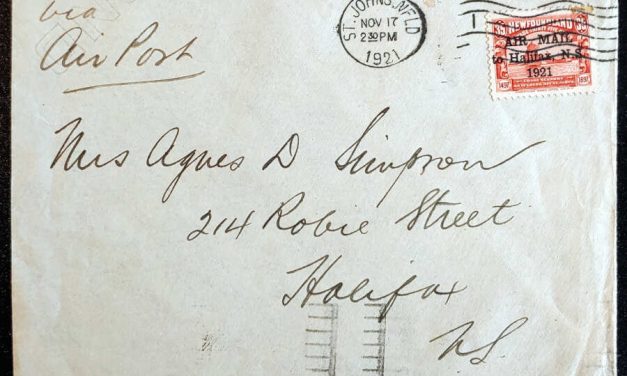 via
Air Post
ST. JOHNS. NFLD
NOV 17
2 30 PM
1921
35 NEWFOUNDLAND 35
AIR MAIL
to Halifax, N.S.
1921
1497 1897
Mrs Agnes D Simpson
214 Robie Street
Halifax
NS.